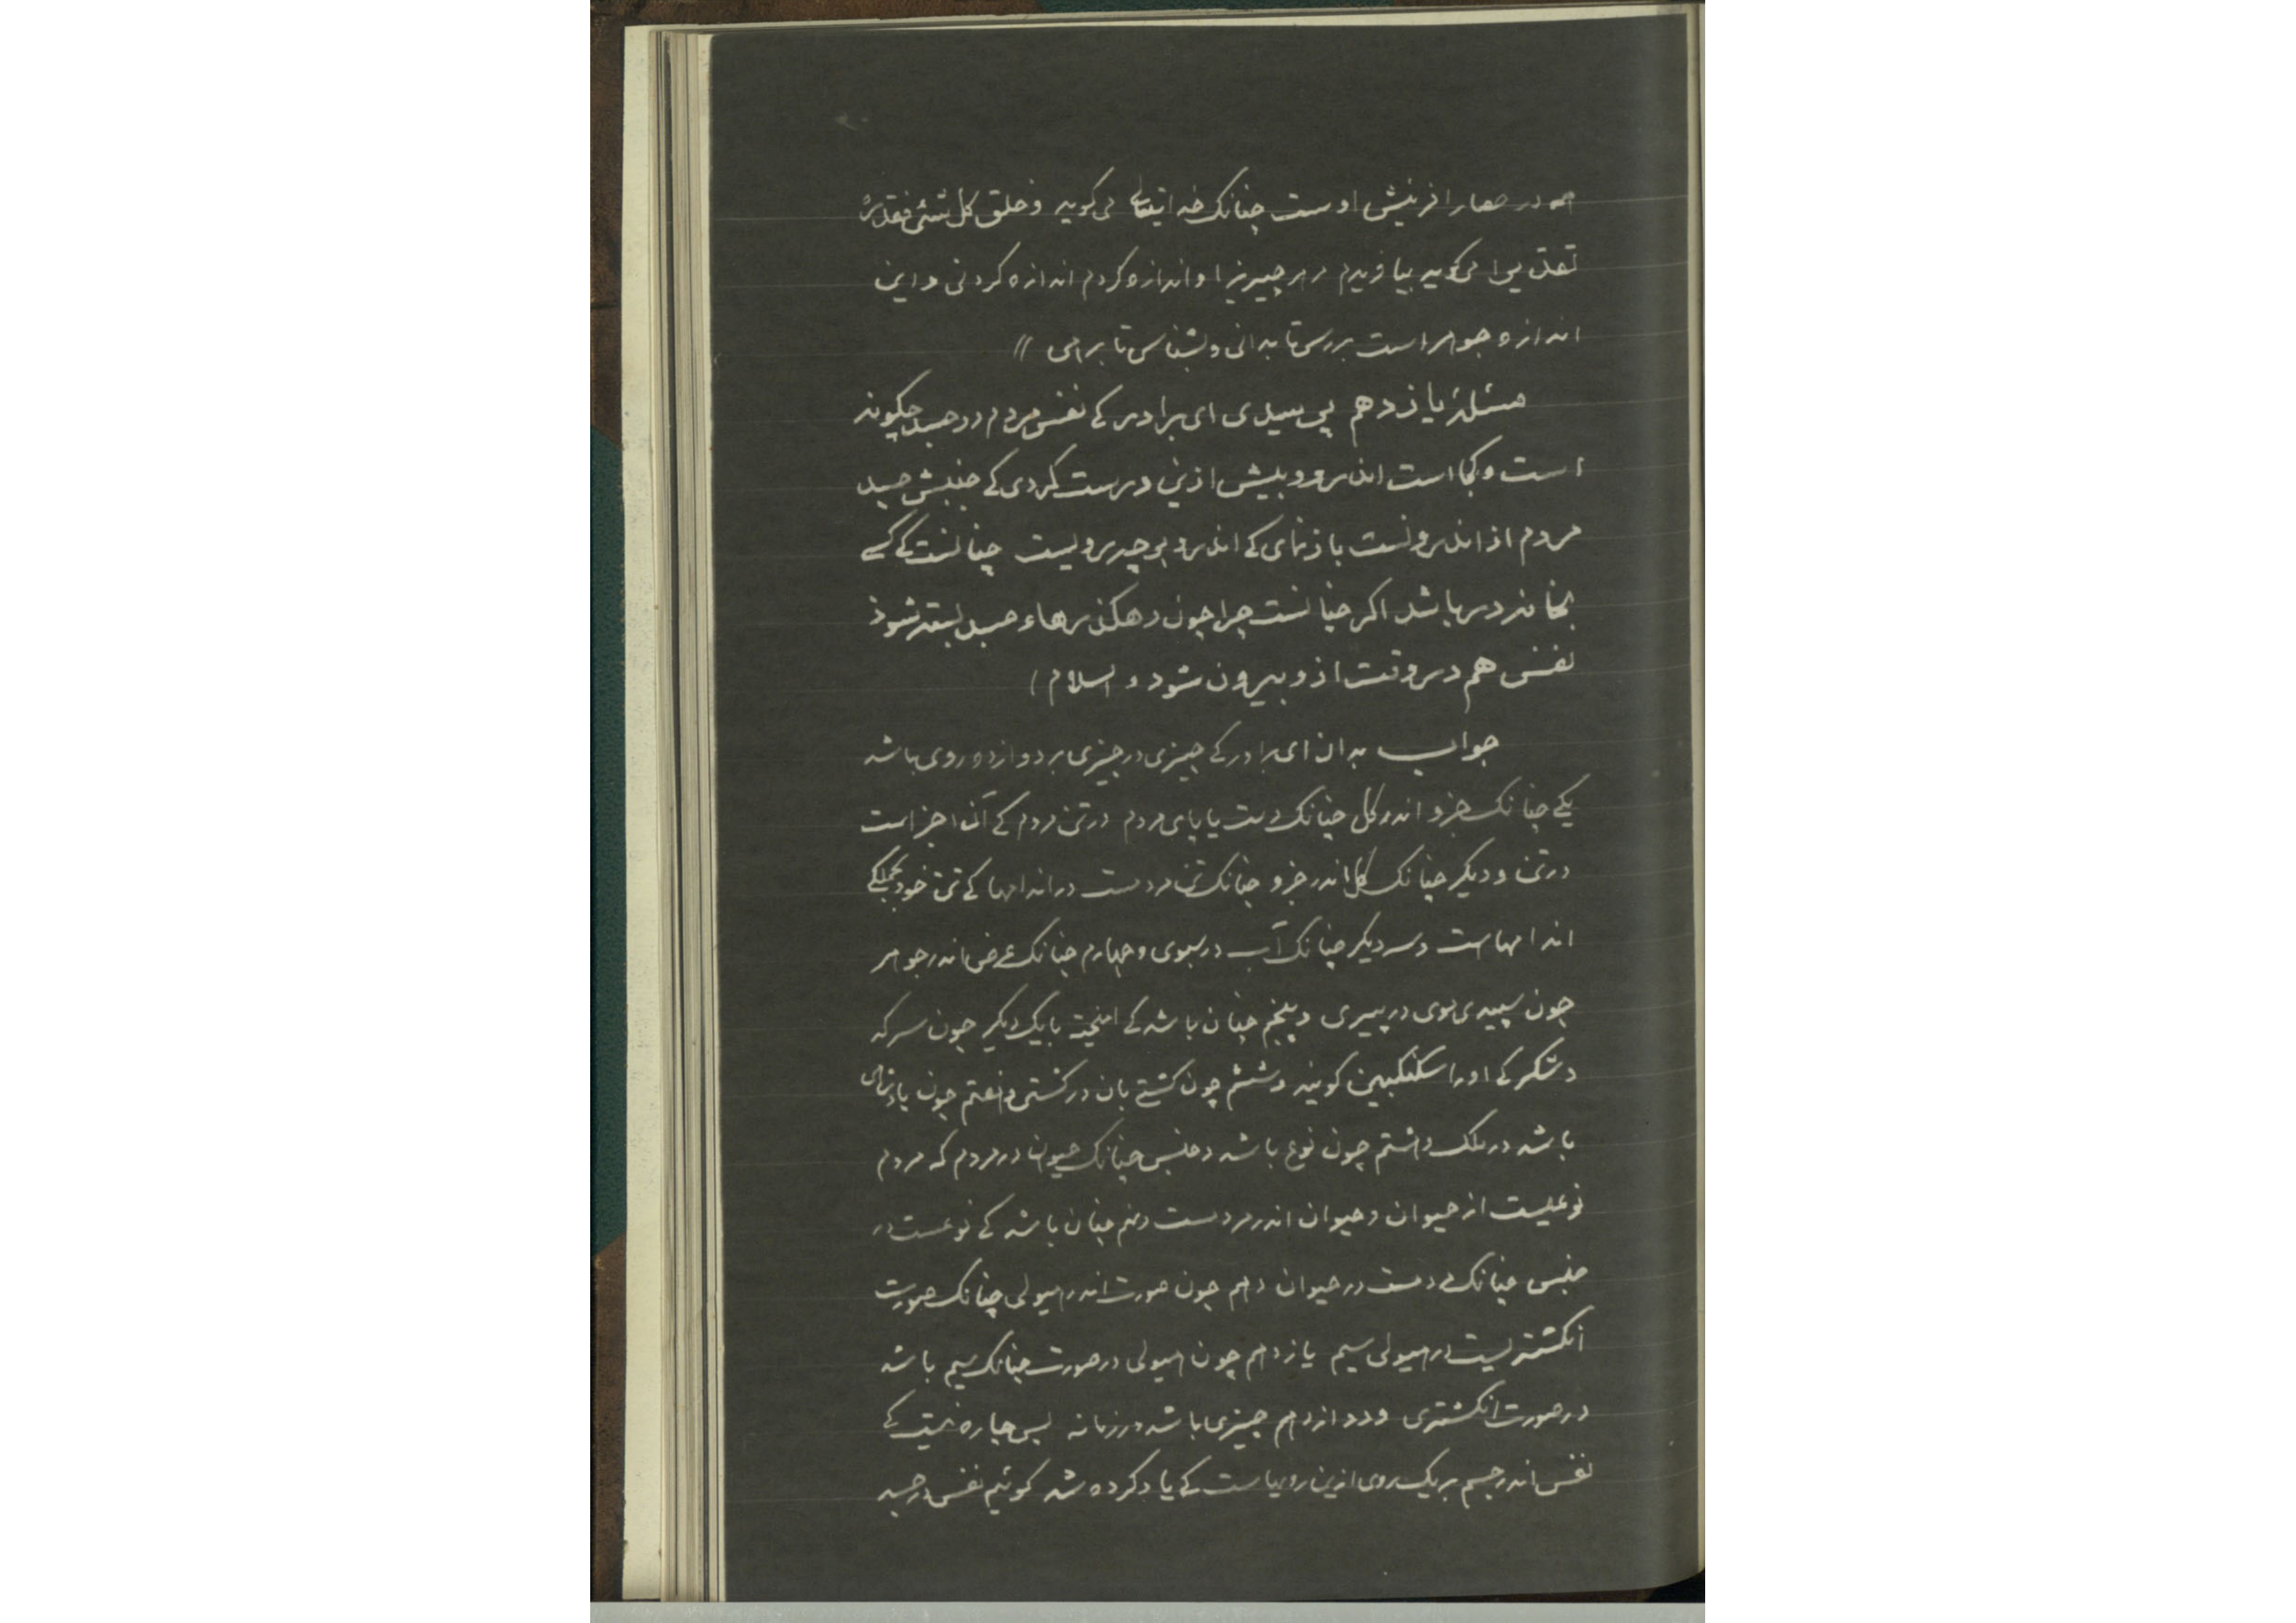 همه در حصار افرینش اوست چنانک خدایتعالی می کوید وخلق کل شئی فقدره
تقدیرا می کوید بیافریدم مر هر چیزیرا و اندازه کردم اندازه کردنی و این
اندازه جوهر است بررس تا بدانی و بشناس تا برهی //
مسئلۀ یازدهم پرسیدی ای برادر کے نفس مردم در جسد چکونه
است و کجا است اندرو و پیش ازین درست کردی کے جنبش جسد
مردم از اندرونست باز نمای کے اندرو بر چه رویست چنانست کے کسے
بخانه در باشد اکر چنانست چرا چون رهکذرهاء جسد بسته شوذ
نفس هم در وقت ازو بیرون شود و السلام)
جواب بدان ای برادر کے چیزی در چیزی بر دوازده روی باشد
یکے چنانک جزو اندر کل چنانک دست یا پای مردم در تن مردم کے آن اجزاست
در تن و دیکر چنانک کل اندر جزو چنانک تن مردمست در اندامها کے تن خود بجملکے
اندامهاست و سه دیکر چنانک آب در سبوی و چهارم چنانک عرض اندر جوهر
چون سپیدی موی در پیری و پنجم چنان باشد کے امیخته با یک دیکر چون سرکه
و شکر کے اورا سکنکبین کویند و ششم چون کشتے بان در کشتی و هفتم چون پادشاهی
باشد در ملک و هشتم چون نوع باشد و جنس چنانک حیوان در مردم که مردم
نوعیست از حیوان و حیوان اندر مردمست و نهم چنان باشد کے نوعست در
جنس چنانک مردمست در حیوان دهم چون صورت اندر هیولی چنانک صورت
انکشتریست در هیولی سیم یازدهم چون هیولی در صورت چنانک سیم باشد
در صورت انکشتری و دوازدهم چیزی باشد در زمانه پس چاره نیست کے
نفس اندر جسم بر یک روی ازین رویهاست کے یاد کرده شد کوئیم نفس در جسد